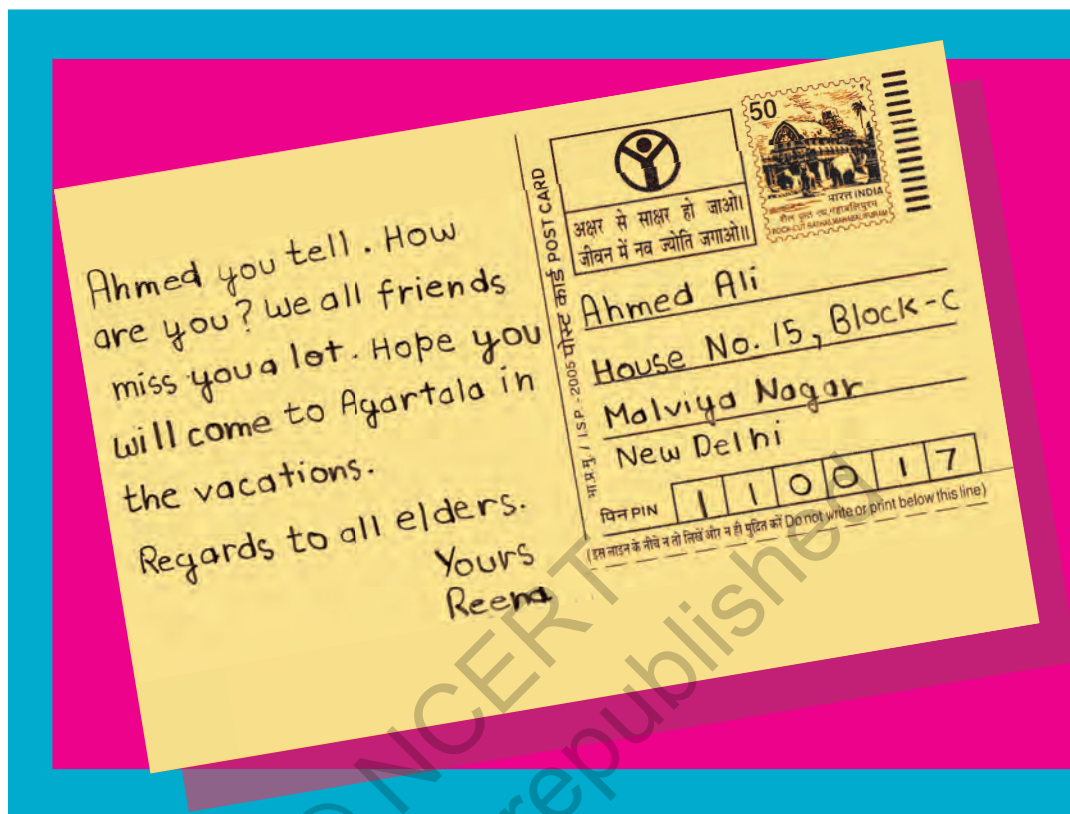 Ahmed you tell. How
are you? We all friends
miss you a lot. Hope you
will come to Agartala in
the vacations.
Regards to all elders.
Yours
Reena
भा.प्र.मु. / I.S.P. - 2005 पोस्ट कार्ड POST CARD
अक्षर से साक्षर हो जाओ।
जीवन में नव ज्योति जगाओ॥
50
भारत INDIA
शैल कृत रथ, महाबलिपुरम
ROCK-CUT RATHAS, MAHABALIPURAM
Ahmed Ali
House No. 15, Block-C
Malviya Nagar
New Delhi
पिन PIN 110017
(इस लाइन के नीचे न तो लिखें और न ही मुद्रित करें Do not write or print below this line)
© NCERT
republished